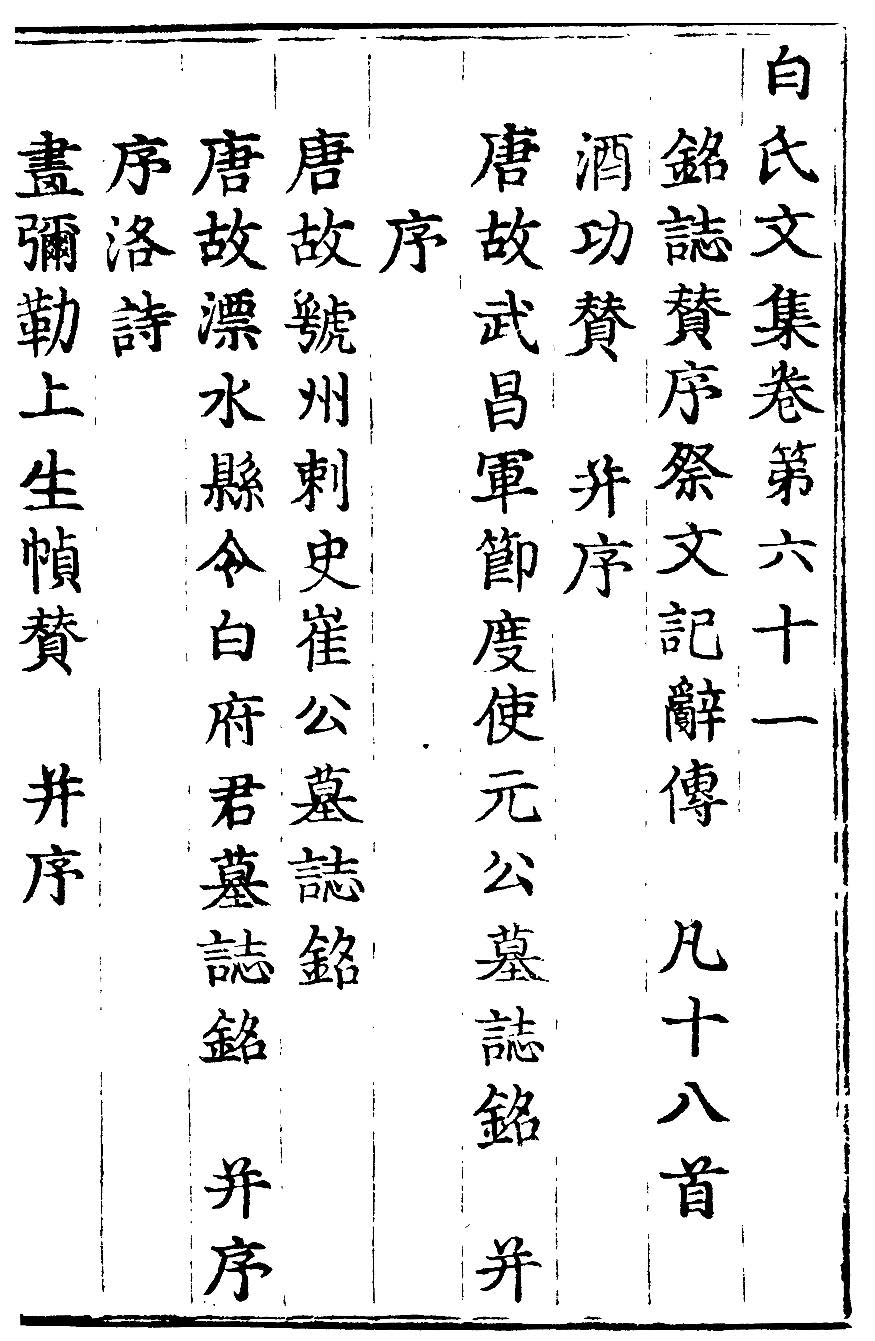 白氏文集卷第六十一
銘誌賛序祭文記辭傳　凡十八首
酒功賛　并序
唐故武昌軍節度使元公墓誌銘　并
序
唐故虢州刺史崔公墓誌銘
唐故漂水縣令白府君墓誌銘　并序
序洛詩
畫彌勒上生幀賛　并序